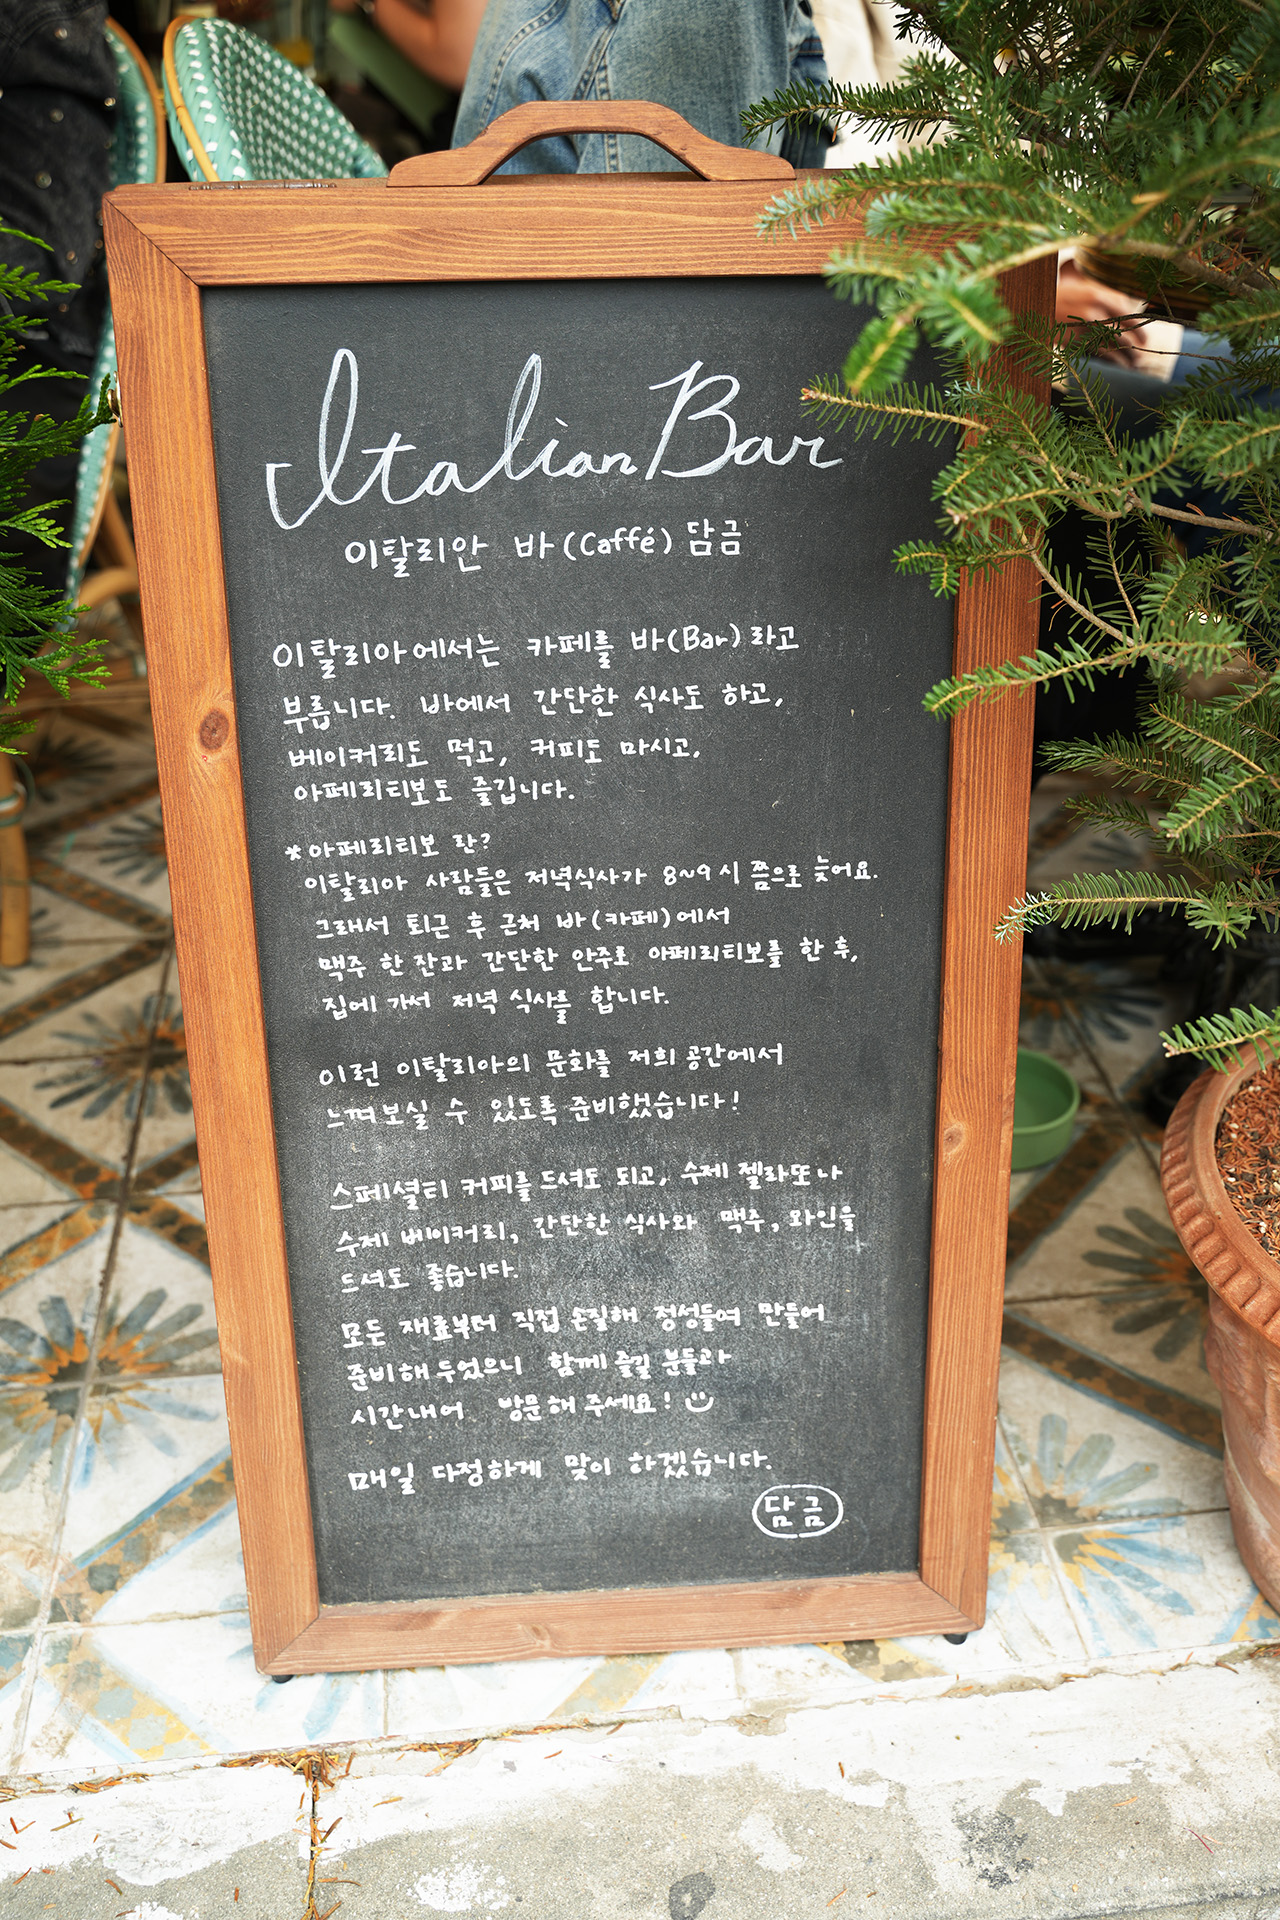 Italian Bar
이탈리안 바 (Caffé) 담금
이탈리아에서는 카페를 바(Bar)라고
부릅니다. 바에서 간단한 식사도 하고,
베이커리도 먹고, 커피도 마시고,
아페리티보도 즐깁니다.
*아페리티보 란?
이탈리아 사람들은 저녁식사가 8~9시 쯤으로 늦어요.
그래서 퇴근 후 근처 바(카페)에서
맥주 한 잔과 간단한 안주로 아페리티보를 한 후,
집에 가서 저녁 식사를 합니다.
이런 이탈리아의 문화를 저희 공간에서
느껴보실 수 있도록 준비했습니다!
스페셜티 커피를 드셔도 되고, 수제 젤라또나
수제 베이커리, 간단한 식사와 맥주, 와인을
드셔도 좋습니다.
모든 재료부터 직접 손질해 정성들여 만들어
준비해 두었으니 함께 즐길 분들과
시간내어 방문해 주세요! ☺
매일 다정하게 맞이 하겠습니다.
담금